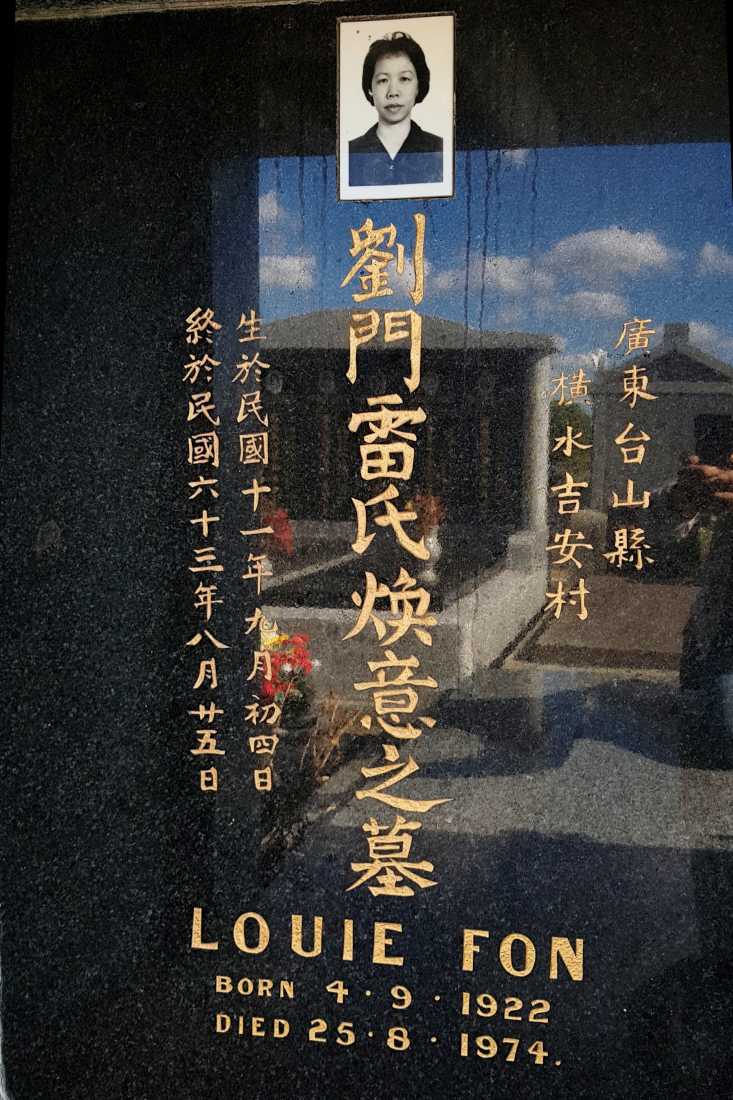 廣東台山縣
橫水吉安村
劉門雷氏焕意之墓
生於民國十一年九月初四日
終於民國六十三年八月廿五日
LOUIE FON
BORN 4·9·1922
DIED 25·8·1974.